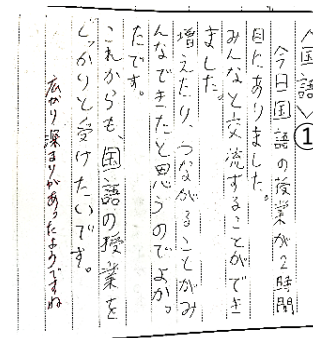 〈国語〉①
今日国語の授業が2時間
目にありました。
みんなと交流することができ
ました。
増えたり、つながることがみ
んなできたと思うのでよかっ
たです。
これからも、国語の授業を
しっかりと受けたいです。
広がり、深まりがあったようですね